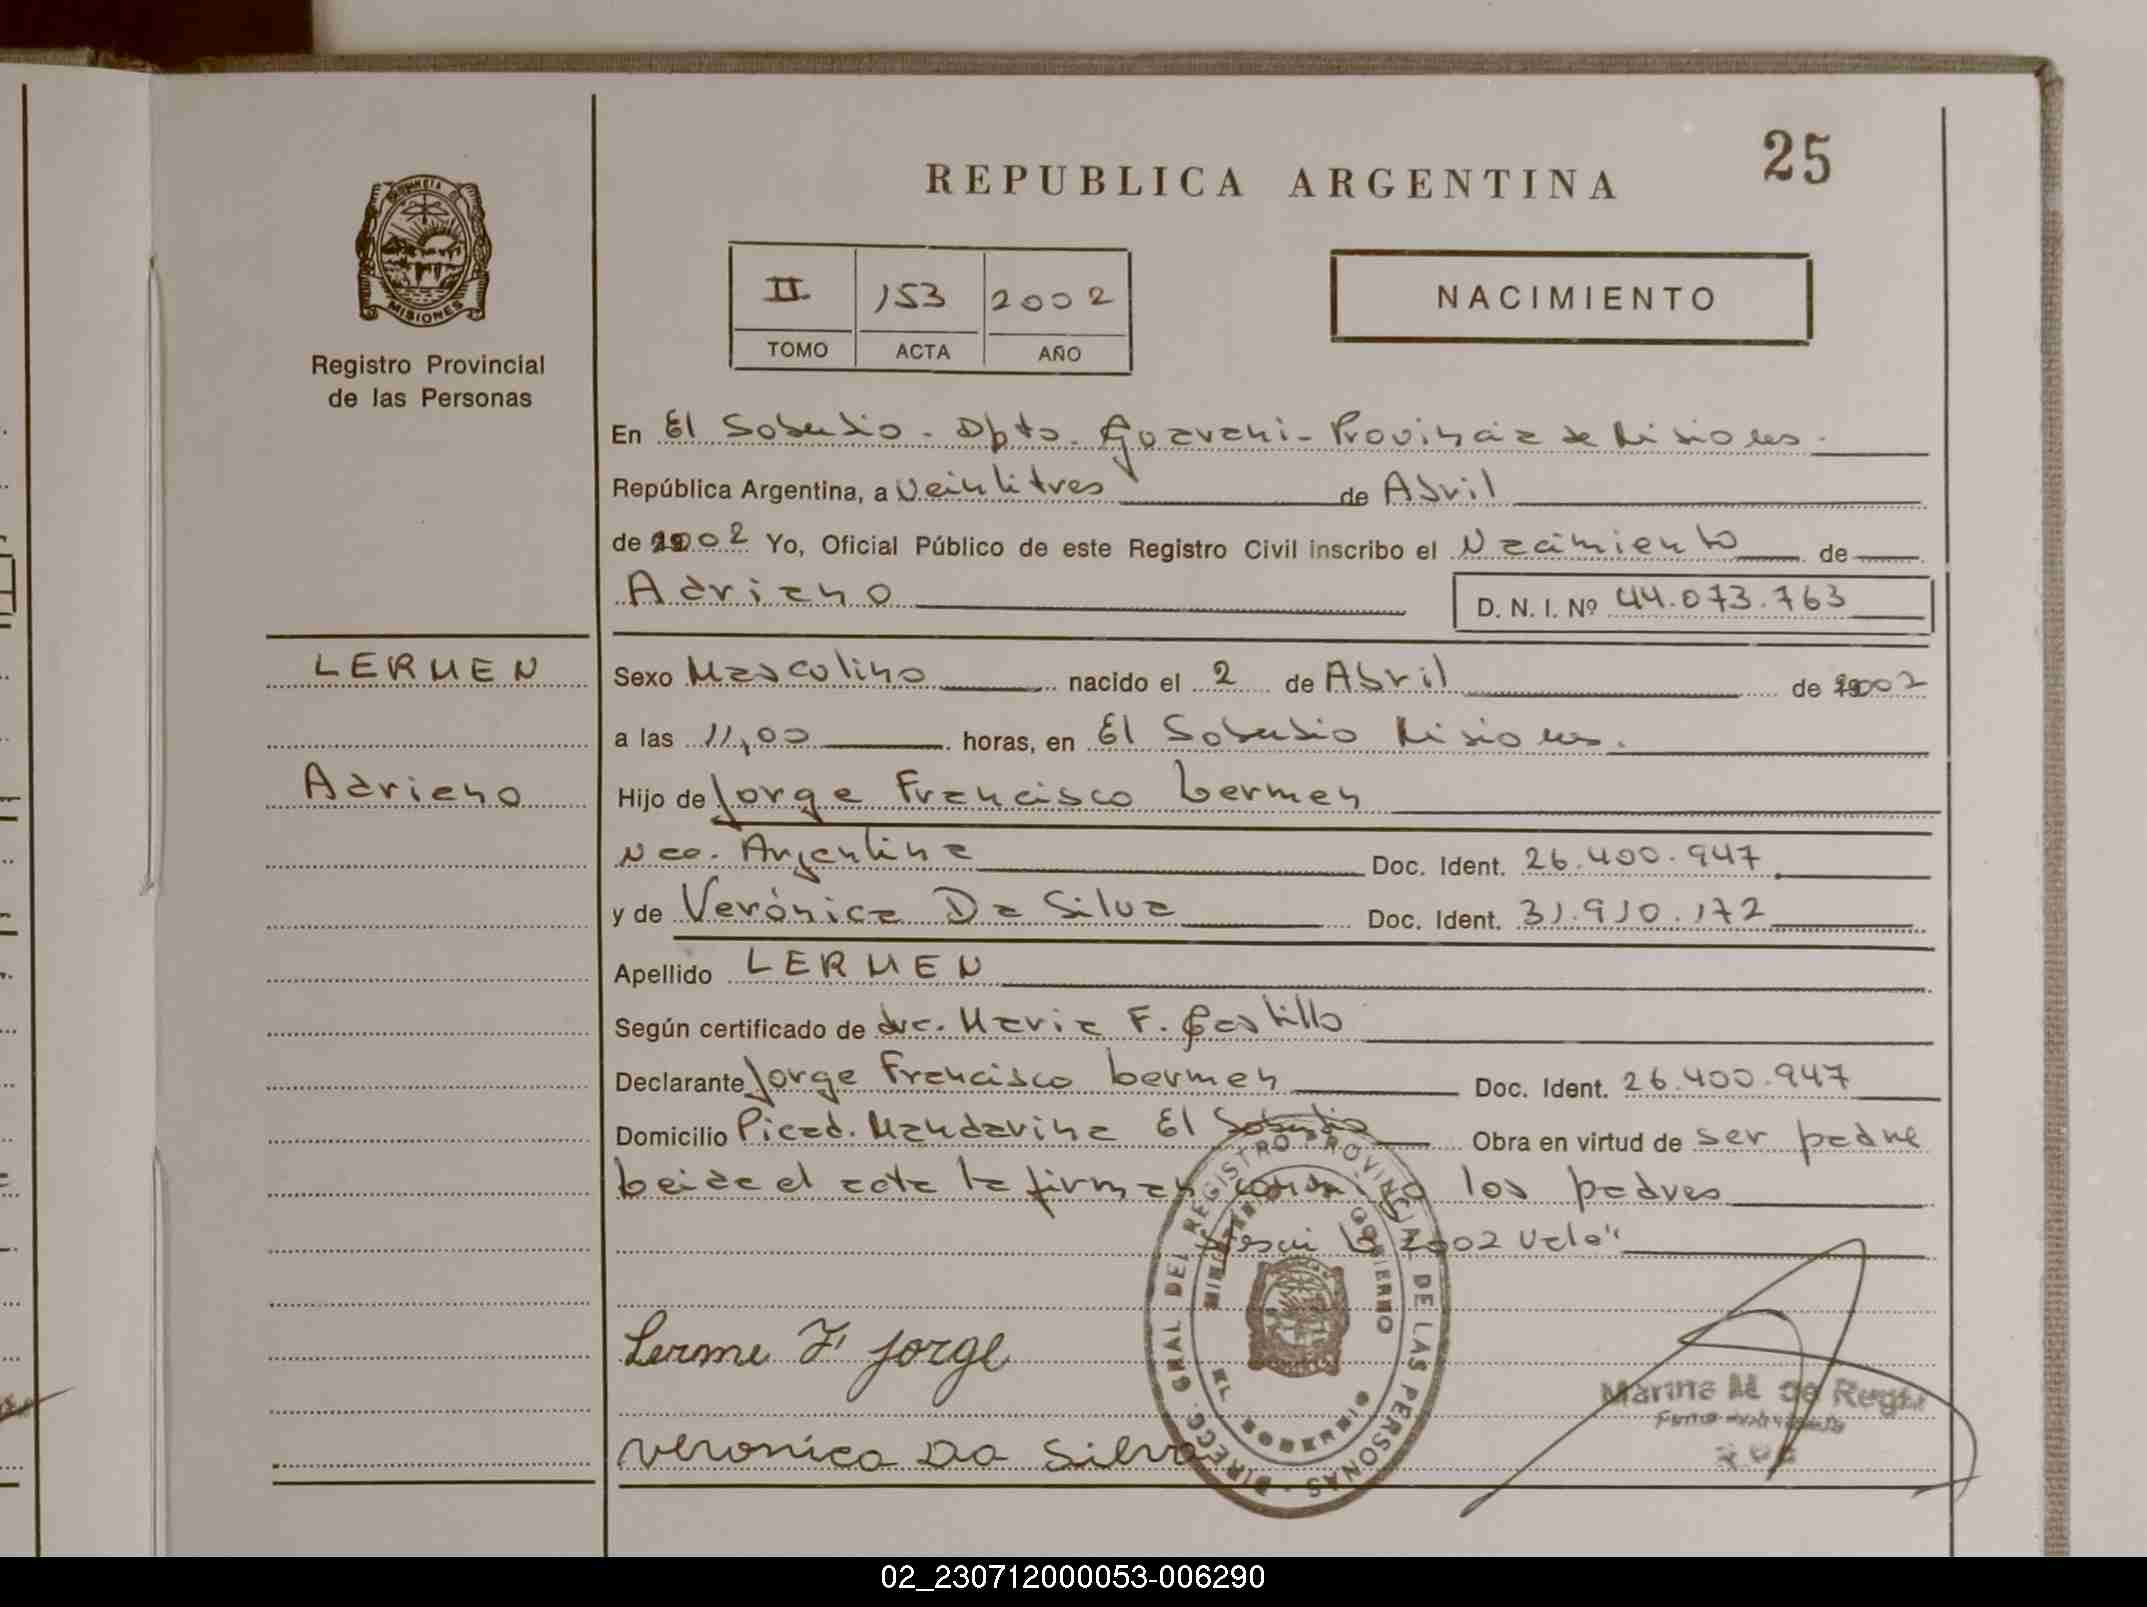 25
REPUBLICA ARGENTINA
PROVINCIA DE
MISIONES
Registro Provincial
de las Personas
II 153 2002
TOMO ACTA AÑO
NACIMIENTO
En El Soberbio - Dpto. Guarani - Provincia de Misiones.
República Argentina, a veintitres de Abril
de 2002 Yo, Oficial Público de este Registro Civil inscribo el Nacimiento de
Adriano D. N. I. Nº 44.073.763
LERMEN
Adriano
Sexo Masculino nacido el 2 de Abril de 2002
a las 11,00 horas, en El Soberbio Misiones.
Hijo de Jorge Francisco Lermen
Nac. Argentina Doc. Ident. 26.400.947
y de Verónica Da Silva Doc. Ident. 31.910.172
Apellido LERMEN
Según certificado de Maria F. Castillo
Declarante Jorge Francisco Lermen Doc. Ident. 26.400.947
Domicilio Picad. Mandarina El Soberbio Obra en virtud de ser padre
Leida el acta la firman conmigo los padres
2002 Vale"
Lerme F Jorge
veronica Da Silva
DIRECC. GRAL DEL REGISTRO PROVINCIAL DE LAS PERSONAS
MINISTERIO GOBIERNO
EL SOBERBIO
Marina M. de
02_230712000053-006290